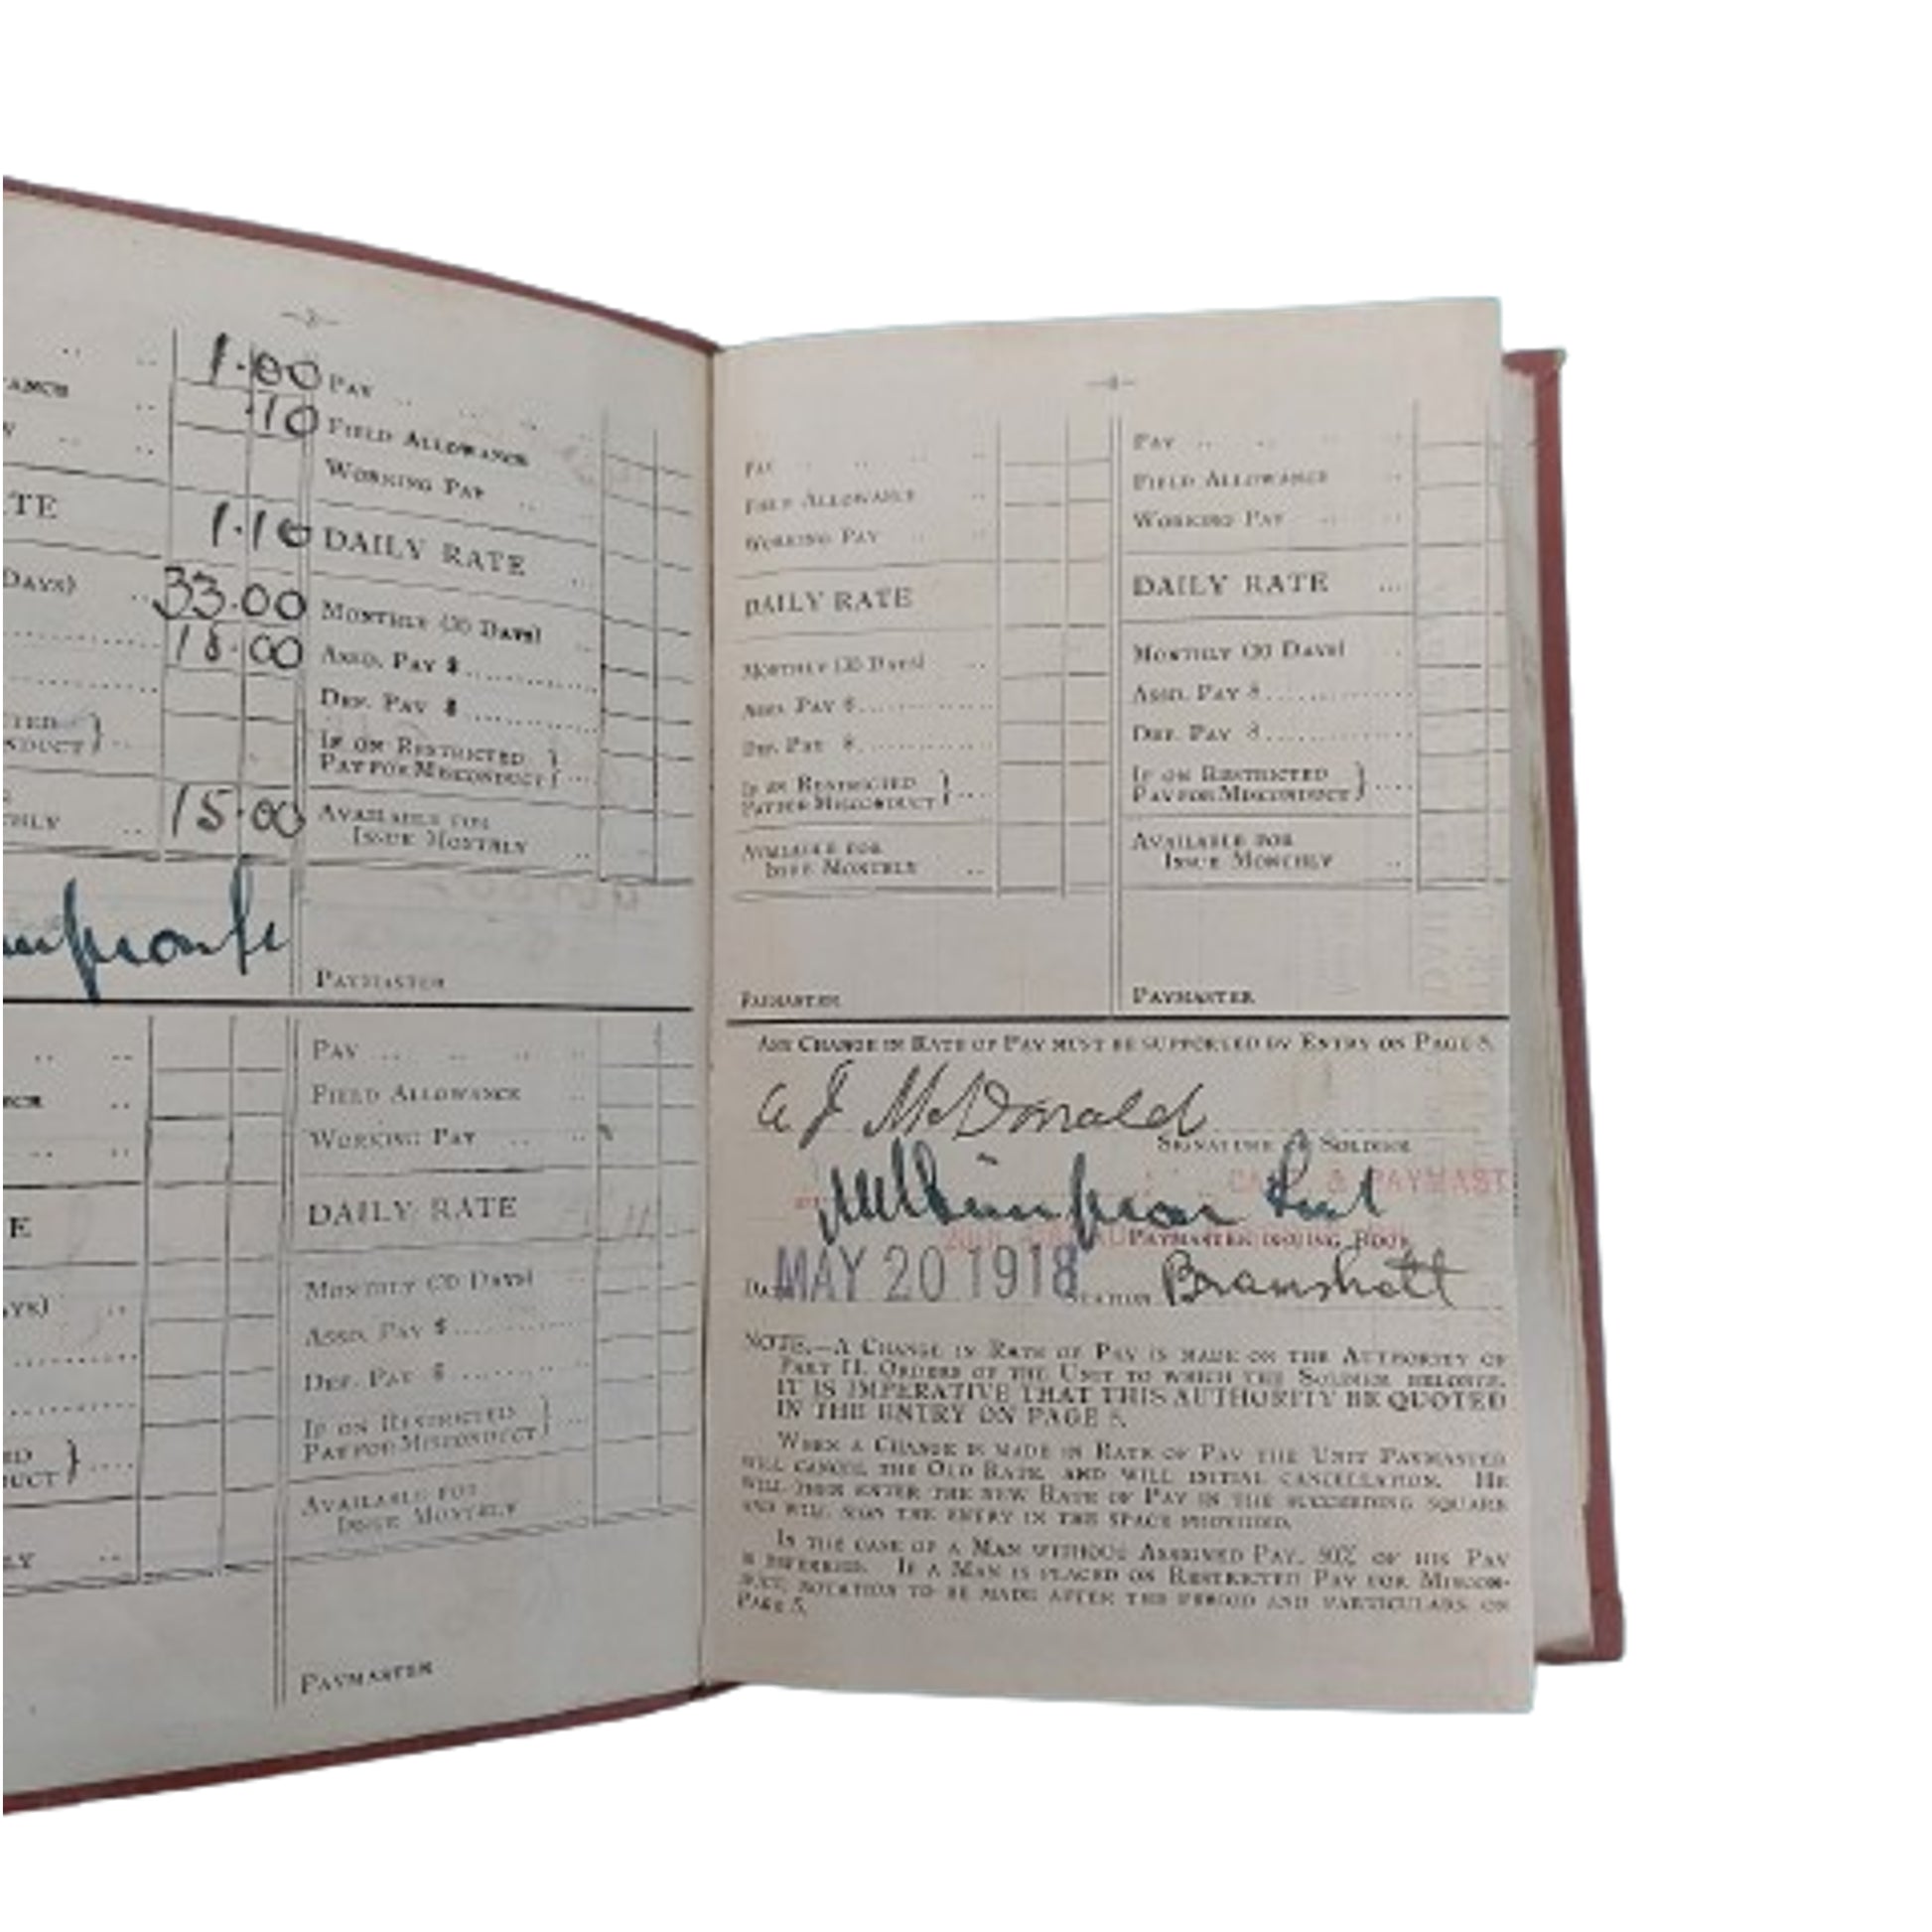 1.00
.10
ANCE
TE
1.10
DAYS)
33.00
18.00
NDUCT }
15.00
PAY
FIELD ALLOWANCE
WORKING PAY
DAILY RATE
MONTHLY (30 DAYS)
ASSD. PAY $
DEF. PAY $
IF ON RESTRICTED
PAY FOR MISCONDUCT }
AVAILABLE FOR
ISSUE MONTHLY
PAYMASTER
E
UCT }
LY
PAY
FIELD ALLOWANCE
WORKING PAY
DAILY RATE
MONTHLY (30 DAYS)
ASSD. PAY $
DEF. PAY $
IF ON RESTRICTED
PAY FOR MISCONDUCT }
AVAILABLE FOR
ISSUE MONTHLY
PAYMASTER
—4—
PAY
FIELD ALLOWANCE
WORKING PAY
DAILY RATE
MONTHLY (30 DAYS)
ASSD. PAY $
DEF. PAY $
IF ON RESTRICTED
PAY FOR MISCONDUCT }
AVAILABLE FOR
ISSUE MONTHLY
PAYMASTER
PAY
FIELD ALLOWANCE
WORKING PAY
DAILY RATE
MONTHLY (30 DAYS)
ASSD. PAY $
DEF. PAY $
IF ON RESTRICTED
PAY FOR MISCONDUCT }
AVAILABLE FOR
ISSUE MONTHLY
PAYMASTER
ANY CHANGE IN RATE OF PAY MUST BE SUPPORTED BY ENTRY ON PAGE 5.
A J McDonald
SIGNATURE OF SOLDIER
& PAYMAST
PAYMASTER ISSUING BOOK
MAY 20 1918 STATION Bramshott
NOTE.—A CHANGE IN RATE OF PAY IS MADE ON THE AUTHORITY OF
PART II. ORDERS OF THE UNIT TO WHICH THE SOLDIER BELONGS.
IT IS IMPERATIVE THAT THIS AUTHORITY BE QUOTED
IN THE ENTRY ON PAGE 5.
WHEN A CHANGE IS MADE IN RATE OF PAY THE UNIT PAYMASTER
WILL CANCEL THE OLD RATE, AND WILL INITIAL CANCELLATION. HE
WILL THEN ENTER THE NEW RATE OF PAY IN THE SUCCEEDING SQUARE
AND WILL SIGN THE ENTRY IN THE SPACE PROVIDED.
IN THE CASE OF A MAN WITHOUT ASSIGNED PAY, 50% OF HIS PAY
IS DEFERRED. IF A MAN IS PLACED ON RESTRICTED PAY FOR MISCON-
DUCT, NOTATION TO BE MADE AFTER THE PERIOD AND PARTICULARS ON
PAGE 5.